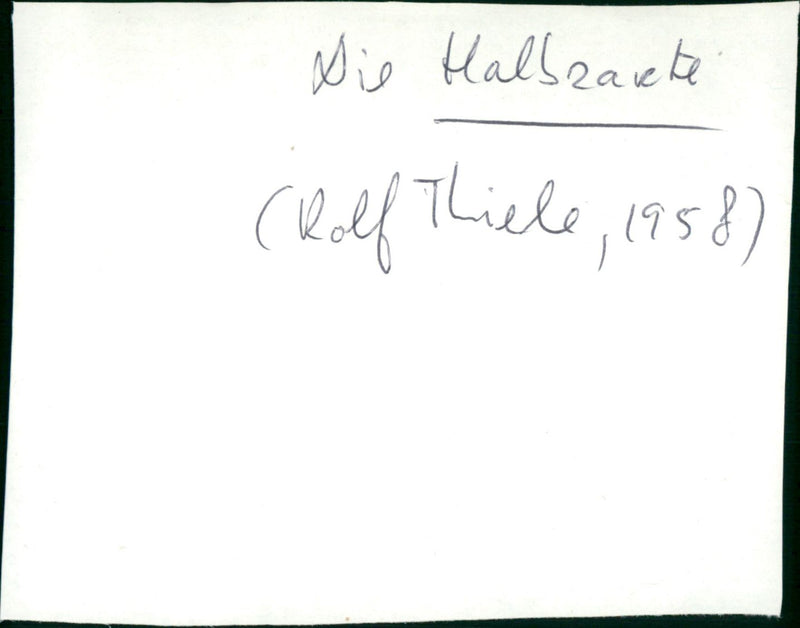 Die Halbzarte
(Rolf Thiele, 1958)